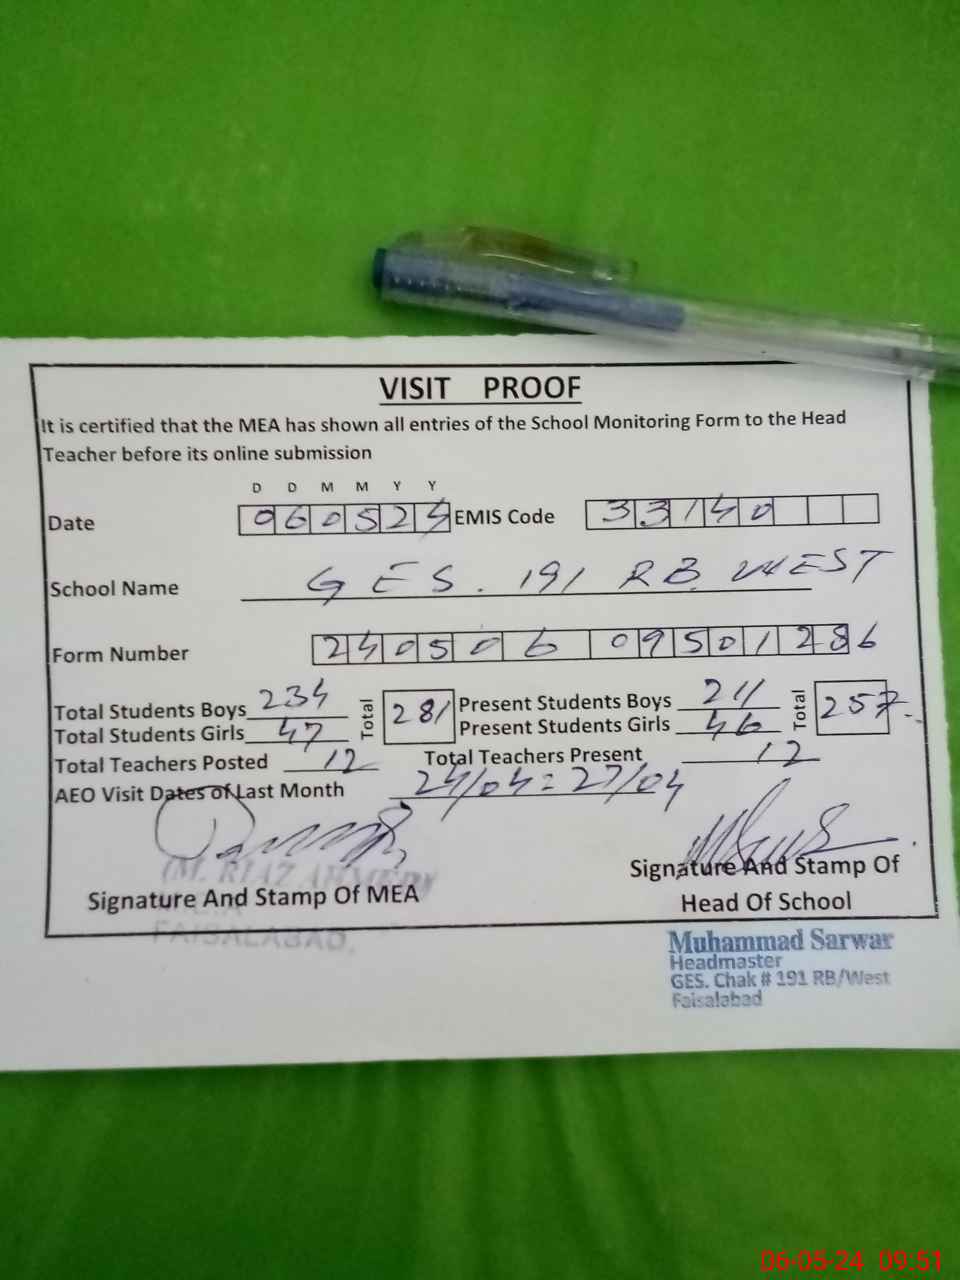 VISIT PROOF
It is certified that the MEA has shown all entries of the School Monitoring Form to the Head
Teacher before its online submission
D D M M Y Y
Date 060524 EMIS Code 33140
School Name GES. 191 RB. WEST
Form Number 240506 09501286
Total Students Boys 234 Total 281 Present Students Boys 211 Total 257
Total Students Girls 47 Present Students Girls 46
Total Teachers Posted 12 Total Teachers Present 12
AEO Visit Dates of Last Month 24/04 = 27/04
(M. RIAZ AHMED)
Signature And Stamp Of MEA
FAISALABAD.
Signature And Stamp Of
Head Of School
Muhammad Sarwar
Headmaster
GES. Chak # 191 RB/West
Faisalabad
06-05-24 09:51